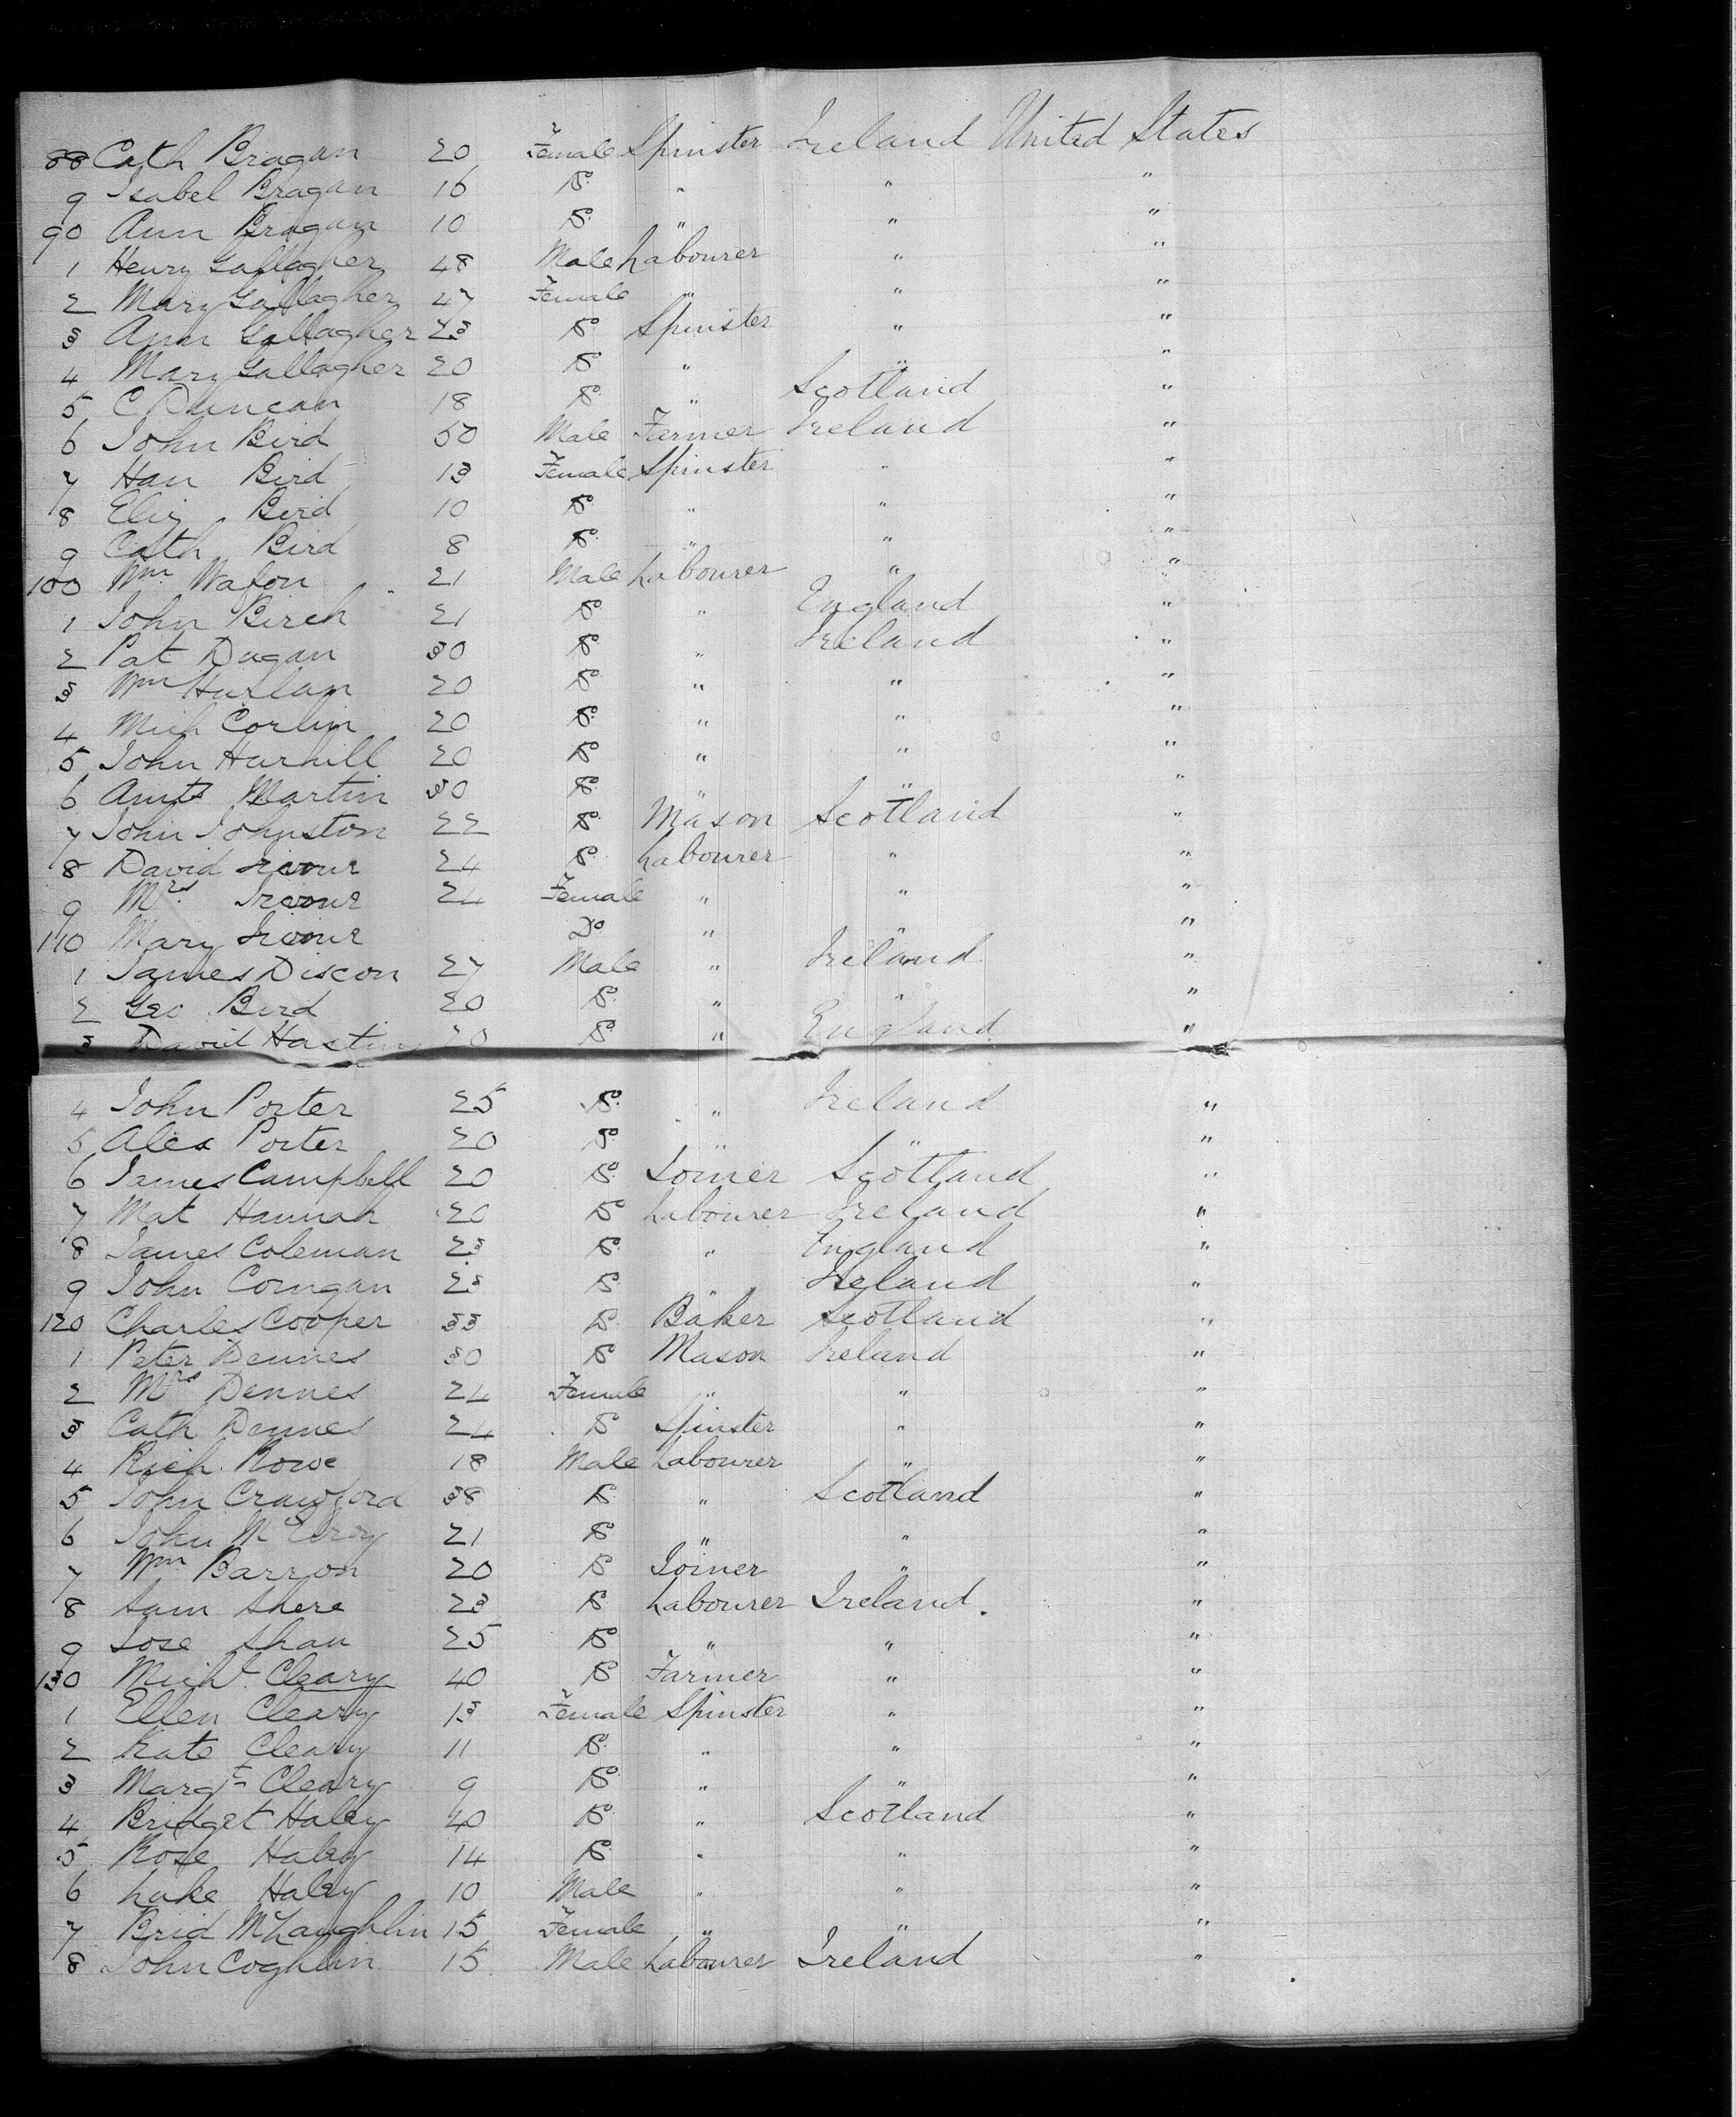 88 Cath Bragan 20 Female Spinster Ireland United States
9 Isabel Bragan 16 Do " " "
90 Ann Bragan 10 Do " " "
1 Henry Gallagher 48 Male Labourer " "
2 Mary Gallagher 47 Female " " "
3 Ann Gallagher 23 Do Spinster " "
4 Mary Gallagher 20 Do " " "
5 C Duncan 18 Do " Scotland "
6 John Bird 50 Male Farmer Ireland "
7 Han Bird 13 Female Spinster " "
8 Eliz Bird 10 Do " " "
9 Cath Bird 8 Do " " "
100 Wm Wafon 21 Male Labourer " "
1 John Birch 21 Do " England "
2 Pat Dugan 30 Do " Ireland "
3 Wm Harlan 20 Do " " "
4 Mich Corlin 20 Do " " "
5 John Harhill 20 Do " " "
6 Martin 30 Do " " "
7 John Johnston 22 Do Mason Scotland "
8 David Irvine 24 Do Labourer " "
9 Mrs Irvine 24 Female " " "
110 Mary Irvine Do " " "
1 James Discon 27 Male " Ireland "
2 Geo Bird 20 Do " " "
3 David Hasting 20 Do " England "
4 John Porter 25 Do " Ireland "
5 Alex Porter 20 Do " " "
6 James Campbell 20 Do Joiner Scotland "
7 Mat Hannah 20 Do Labourer Ireland "
8 James Coleman 23 Do " England "
9 John Corrigan 23 Do " Ireland "
120 Charles Cooper 33 Do Baker Scotland "
1 Peter Dennes 30 Do Mason Ireland "
2 Mrs Dennes 24 Female " " "
3 Cath Dennes 24 Do Spinster " "
4 Rich Rowe 18 Male Labourer " "
5 John Crawford 38 Do " Scotland "
6 John McElroy 21 Do " " "
7 Wm Barron 20 Do Joiner " "
8 Sam Shere 23 Do Labourer Ireland "
9 Jose Shau 25 Do " " "
130 Michl Cleary 40 Do Farmer " "
1 Ellen Cleary 13 Female Spinster " "
2 Kate Cleary 11 Do " " "
3 Margt Cleary 9 Do " " "
4 Bridget Haley 40 Do " Scotland "
5 Rose Haley 14 Do " " "
6 Luke Haley 10 Male " " "
7 Brid McLaughlin 15 Female " " "
8 John Coghlin 15 Male Labourer Ireland "